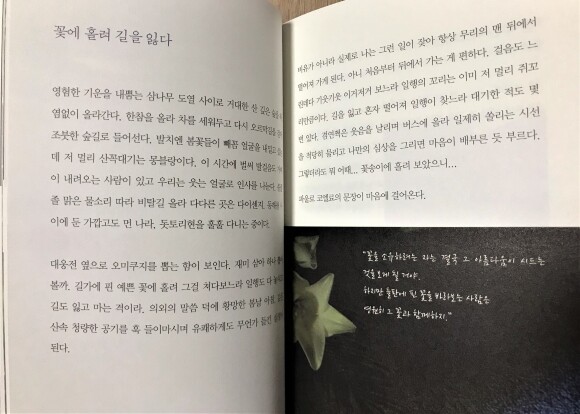 꽃에 홀려 길을 잃다
영험한 기운을 내뿜는 삼나무 도열 사이로 거대한 산 깊은 숲을
염없이 올라간다. 한참을 올라 차를 세워두고 다시 오르막길을
조붓한 숲길로 들어선다. 발치엔 봄꽃들이 빼꼼 얼굴을 내밀고
데 저 멀리 산꼭대기는 몽블랑이다. 이 시간에 벌써 발걸음도
이 내려오는 사람이 있고 우리는 웃는 얼굴로 인사를 나눈다.
졸 맑은 물소리 따라 비탈길 올라 다다른 곳은 다이센지.
이에 둔 가깝고도 먼 나라, 돗토리현을 훌훌 다니는 중이다.
대웅전 옆으로 오미쿠지를 뽑는 함이 보인다. 재미 삼아 하나
볼까. 길가에 핀 예쁜 꽃에 홀려 그걸 쳐다보느라 일행도 다
길도 잃고 마는 격이라. 의외의 말씀 덕에 황망한 봄날 아침.
산속 청량한 공기를 훅 들이마시며 유쾌하게도 무언가 들킨
된다.
비유가 아니라 실제로 나는 그런 일이 잦아 항상 무리의 맨 뒤에서
떨어져 가게 된다. 아니 처음부터 뒤에서 가는 게 편하다. 걸음도 느
린데다 기웃기웃 이거저거 보느라 일행의 꼬리는 이미 저 멀리 쥐꼬
리만큼이다. 길을 잃고 혼자 떨어져 일행이 찾느라 대기한 적도 몇
번 있다. 겸연쩍은 웃음을 날리며 버스에 올라 일제히 쏠리는 시선
을 적당히 물리고 나만의 심상을 그리면 마음이 배부른 듯 부르다.
그렇더라도 뭐 어때... 꽃송이에 홀려 보았으니...
파울로 코엘료의 문장이 마음에 걸어온다.
"꽃을 소유하려는 자는 결국 그 아름다움이 시드는
것을 보게 될 거야.
하지만 들판에 핀 꽃을 바라보는 사람은
영원히 그 꽃과 함께하지."